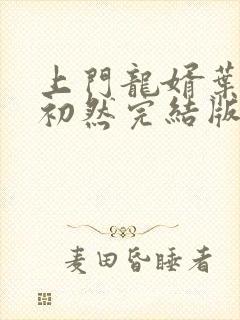 上門龍婿葉
初然完結版
麦田昏睡者